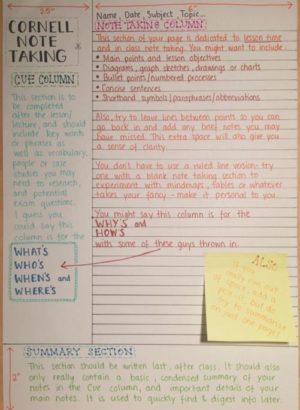 2.5"
6"
CORNELL
NOTE
TAKING
CUE COLUMN
This section is to
be completed
after the lesson/
lecture, and should
include key words
or phrases as
well as vocabulary,
people or case
studies you may
need to research,
and potential
exam questions.
I guess you
could say this
column is for the
WHAT'S
WHO'S
WHEN'S and
WHERE'S
Name, Date, Subject, Topic...
NOTE TAKING COLUMN
This section of your page is dedicated to lesson time
and in class note taking. You might want to include:
• Main points and lesson objectives
• Diagrams, graph sketches, drawings or charts
• Bullet points/numbered processes
• Concise sentences
• Shorthand symbols/paraphrases/abbreviations
Also, try to leave lines between points so you can
go back in and add any brief notes you may
have missed. This extra space will also give you
a sense of clarity.
You don't have to use a ruled line version: try
one with a blank note taking section to
experiment with mindmaps, tables or whatever
takes your fancy - make it personal to you.
You might say this column is for the
WHY'S and
HOW'S
with some of these guys thrown in.
ALSO
If you
really run out
of space add a
but do
try to summarise
on just one page!
SUMMARY SECTION
2"
This section should be written last, after class. It should also
only really contain a basic, condensed summary of your
notes in the Cue column, and important details of your
main notes. It is used to quickly find & digest info later.